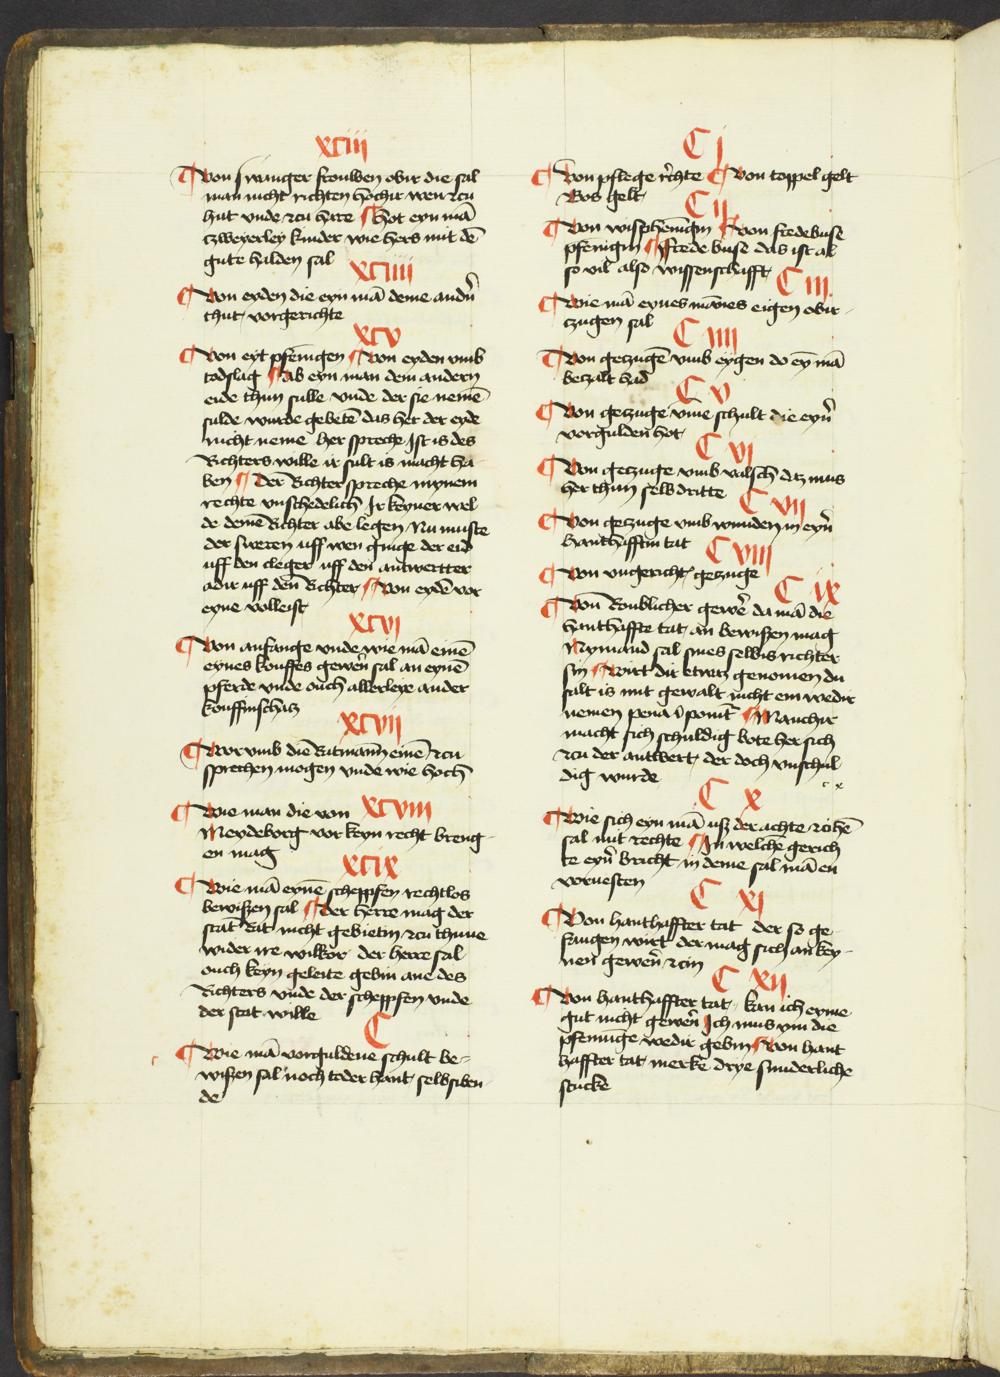 xciii
¶ Von swanger frouwen obir die sal
man nicht richten hochir wen zcu
hut vnde zcu hare ¶ Hot eyn mā
czweyerley kinder wie hers mit dē
gute halden sal
xciiii
¶ Von eyden die eyn mā deme andn̄
thut vorgerichte
xcv
¶ Von eyt pfenīgen ¶ Von eyden vmb
todslag ¶ Ab eyn man dem andern
eide thun sulle vnde der sie nemē
sulde wurde gebetē das her der eyde
nicht neme her spreche Ist is des
Richters wille ir sult is macht ha
ben ¶ Der Richter spreche mynem
rechte vnschedelich Ir keyner wol
de demē Richter abe legen Nu muste
der sweren uff wen ginge der eid
uff den cleger uff den antwertter
adir uff den Richter ¶ Von eydē vor
eyne volleist
xcvi
¶ Von anfange vnde wie mā einē
eynes kouffes gewern sal an eynē
pferde vnde ouch allerleye ander
kouffinschatz
xcvii
¶ Worvmb die Ratmann einē zcu
sprechen mogen vnde wie hoch
xcviii
¶ Wie man die von
Meydeborg vor keyn recht breng
en mag
xcix
¶ Wie mā eynē scheppfen rechtlos
bewißen sal ¶ Der herre mag der
stat Rat nicht gebietin zcu thune
wider ire wilkor der herre sal
ouch keyn geleite gebin ane des
Richters vnde der scheppfen vnde
der stat wille
C
¶ Wie mā vorguldene schult be-
wißen sal noch toder hant selbsiben
de
C j
¶ Von pflege rechte ¶ Von toppel gelt
Ros gelt
C ij
¶ Von wispfenīgin ¶ Von stedebuse
pfenīgin ¶ Stede buse das ist al
so vil also wissenschafft
C iii
¶ Wie mā eynes mānes eigen obir
czugen sal
C iiii
¶ Von geczugē vmb eygen do ey mā
beczalt had
C v
¶ Von geczuge vme schult die eyn̄
vorgulden hot
C vi
¶ Von geczuge vmb valsch daz mus
her thun selbdritte
C vii
¶ Von geczuge vmb wunden in eyn̄
hanthafftin tat
C viii
¶ Von vngericht geczuge
C ix
¶ Von Roublicher gewer da mā die
hanthaffte tat an bewißen mag
Nymand sal sines selbis richter
sin ¶ Wirt dir etwaz genomen du
salt is mit gewalt nicht em wedir
nemen pena ī ponit ¶ Mancher
macht sich schuldig bote her sich
zcu der antwert der doch vnschul
dig wurde
C x
¶ Wie sich eyn mā uß der achte zcihē
sal mit rechte ¶ In welchē gerich
te eyn̄ bricht in deme sal mā en
voruesten
C xi
¶ Von hanthaffter tat der so ge-
fangen wirt der mag sich an key-
nen gewern zcin
C xii
¶ Von hanthaffter tat kan ich eyme
gut nicht gewern Ich mus ym die
pfennīge wedir gebin ¶ Von hant
haffter tat merke drye sunderliche
stucke